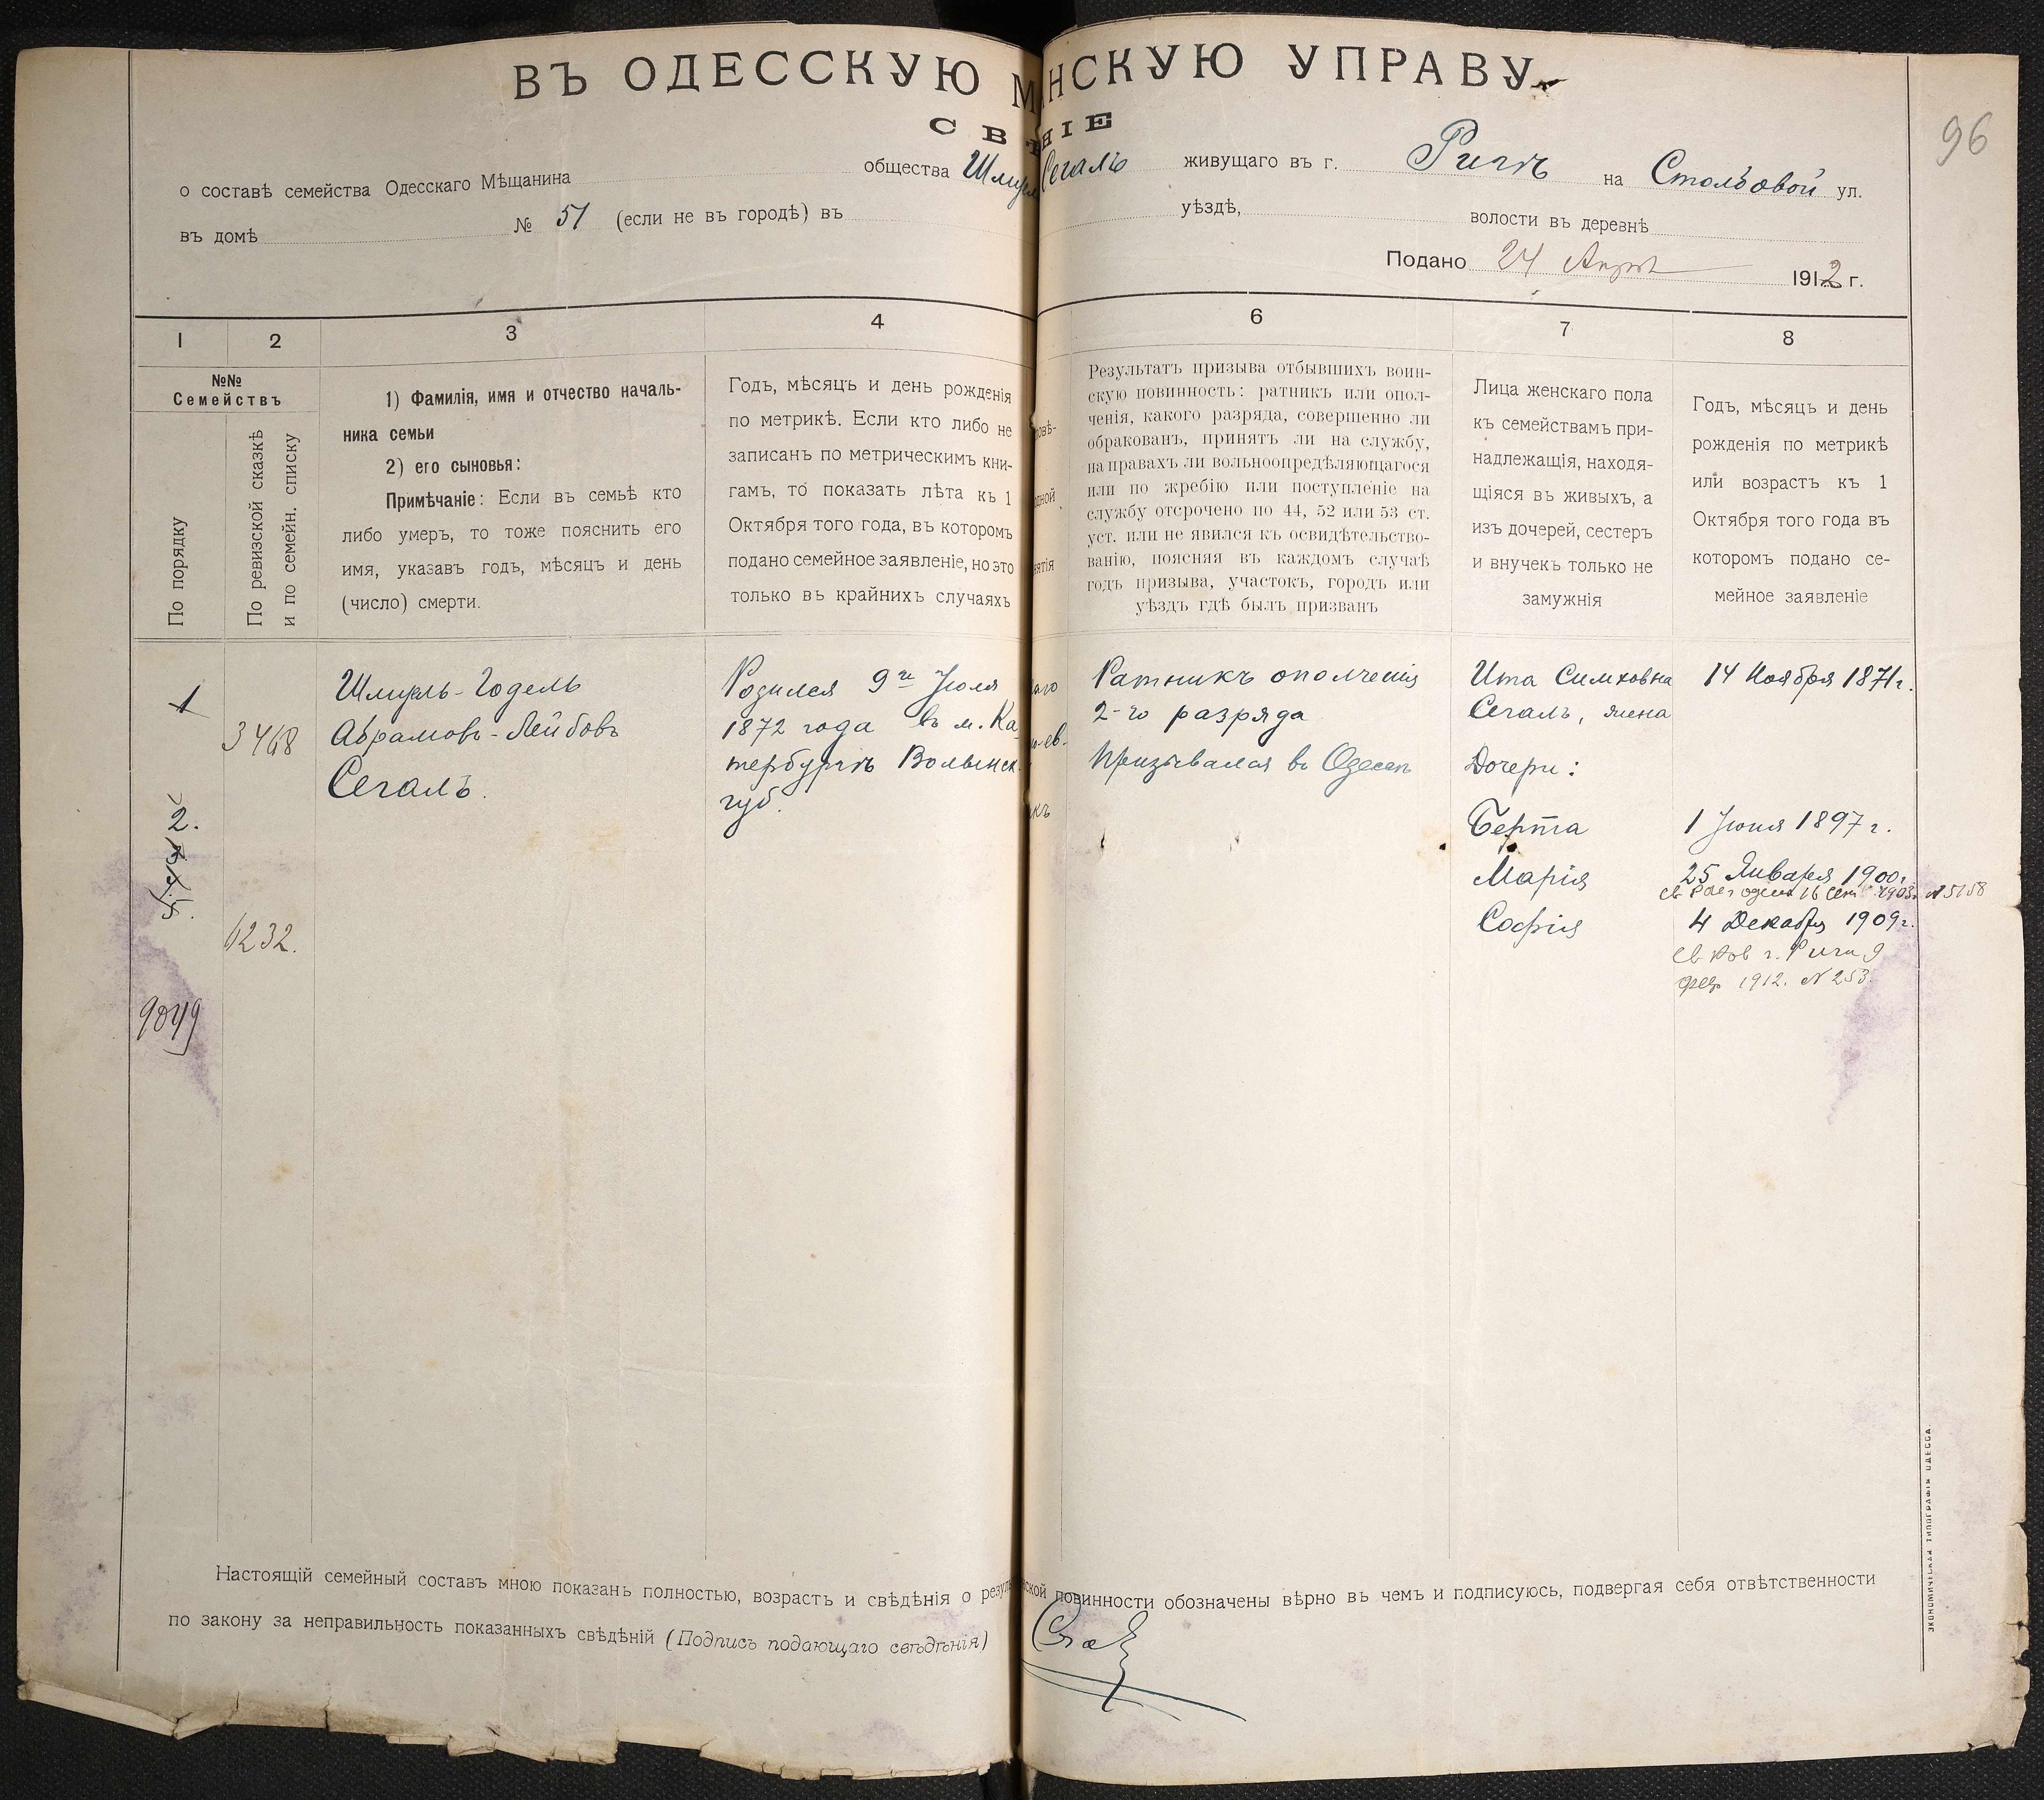 ВЪ ОДЕССКУЮ М НСКУЮ УПРАВУ
СВѢ НІЕ
96
о составѣ семейства Одесскаго Мѣщанина общества Шмуля Сегалъ живущаго въ г. Ригѣ на Столбовой ул.
въ домѣ № 51 (если не въ городѣ) въ уѣздѣ, волости въ деревнѣ
Подано 24 Апрѣ 1912 г.
1 2 3 4 6 7 8
№№
Семействъ
По порядку
По ревизской сказкѣ
и по семейн. списку
1) Фамилія, имя и отчество началь-
ника семьи
2) его сыновья:
Примѣчаніе: Если въ семьѣ кто
либо умеръ, то тоже пояснить его
имя, указавъ годъ, мѣсяцъ и день
(число) смерти.
Годъ, мѣсяцъ и день рожденія
по метрикѣ. Если кто либо не
записанъ по метрическимъ кни-
гамъ, то показать лѣта къ 1
Октября того года, въ которомъ
подано семейное заявленіе, но это
только въ крайнихъ случаяхъ
Результатъ призыва отбывшихъ воин-
скую повинность: ратникъ или опол-
ченія, какого разряда, совершенно ли
обракованъ, принятъ ли на службу,
на правахъ ли вольноопредѣляющагося
или по жребію или поступленіе на
службу отсрочено по 44, 52 или 53 ст.
уст. или не явился къ освидѣтельство-
ванію, поясняя въ каждомъ случаѣ
годъ призыва, участокъ, городъ или
уѣздъ гдѣ былъ призванъ
Лица женскаго пола
къ семействамъ при-
надлежащія, находя-
щіяся въ живыхъ, а
изъ дочерей, сестеръ
и внучекъ только не
замужнія
Годъ, мѣсяцъ и день
рожденія по метрикѣ
или возрастъ къ 1
Октября того года въ
которомъ подано се-
мейное заявленіе
1
2.
9049
3468
6232.
Шмуль-Годель
Абрамовъ-Лейбовъ
Сегалъ.
Родился 9го Іюля
1872 года въ м. Ка-
тербургѣ Волынск.
губ.
Ратникъ ополченія
2-го разряда
Призывался въ Одессѣ
Ита Симховна
Сегалъ, жена
Дочери:
Берта
Марія
Софія
14 Ноября 1871г.
1 Іюня 1897 г.
25 Января 1900г.
16 Сен 1903г. N 5158
4 Декабря 1909г.
г. Рига 9
фев 1912. N 253.
Настоящій семейный составъ мною показанъ полностью, возрастъ и свѣдѣнія о резуль ской повинности обозначены вѣрно въ чемъ и подписуюсь, подвергая себя отвѣтственности
по закону за неправильность показанныхъ свѣдѣній (Подпись подающаго свѣдѣнія)
ЭКОНОМИЧЕСКАЯ ТИПОГРАФІЯ ОДЕССА.